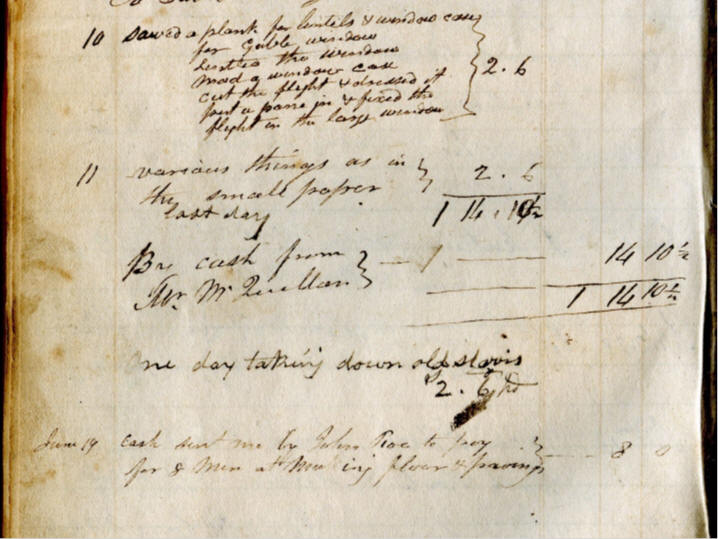 10 sawed a plank for lintels & window case
for Gable window
the window
made a window case
cut the flight & dressed it
put a pane in & fixed the
flight in the large window } 2.6
11 various things as in
the small paper
last day } 2.6
1 14. 10½
By cash from
Mr. McQuillan } — 1 — 14 10½
1 14 10½
One day taking down old
2.6
June 19 cash sent me by John to pay
for 8 Men at floor & paving } 8 0